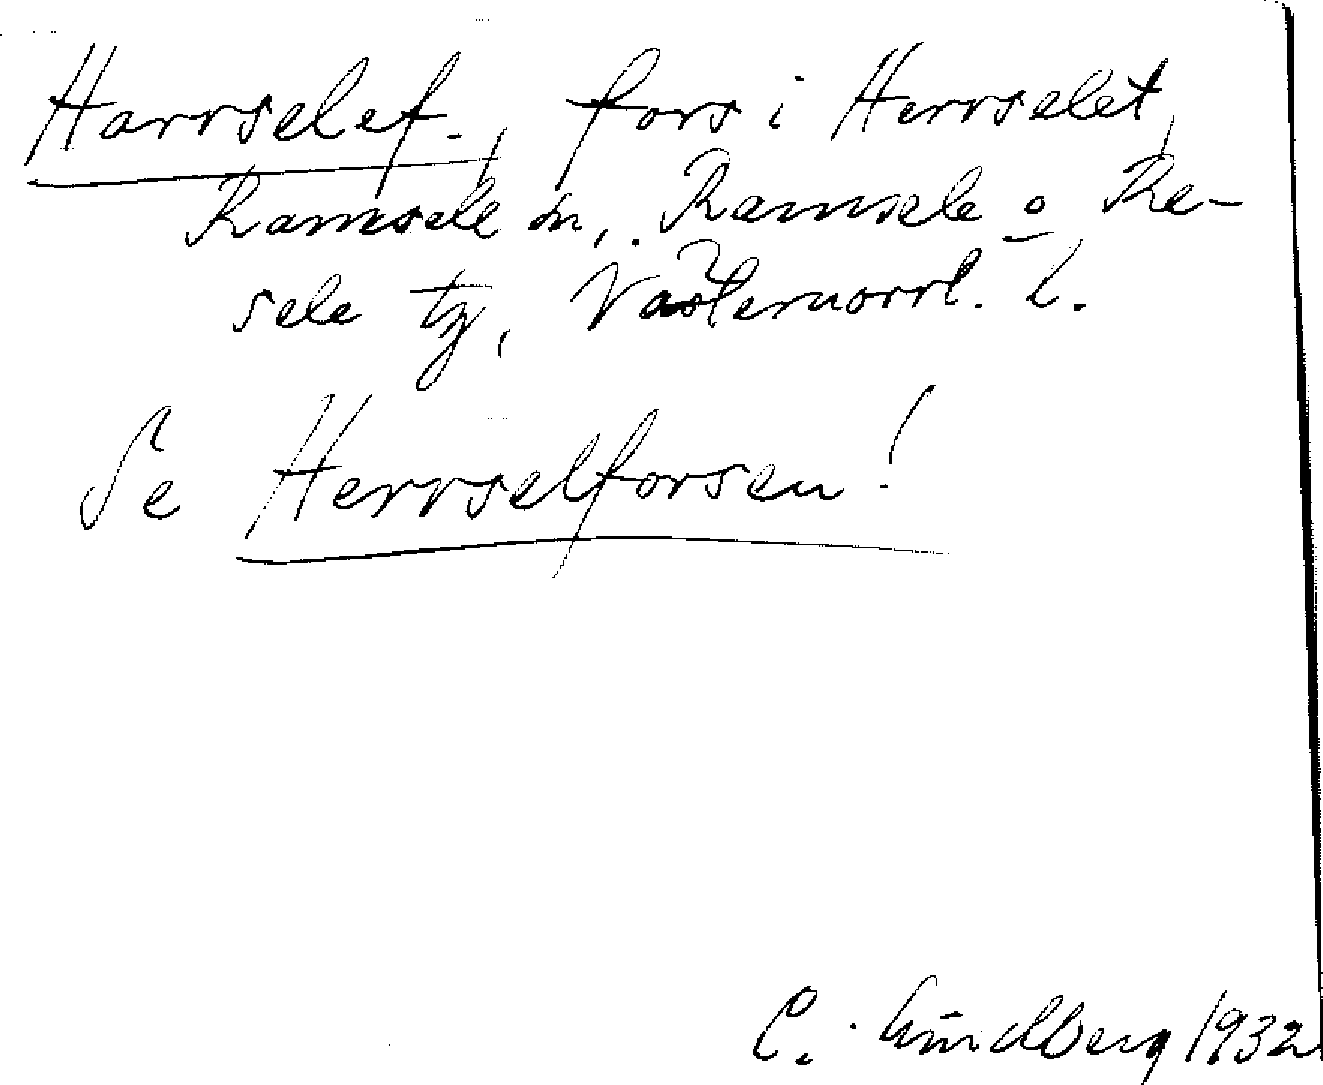 Harrself., fors i Herrselet,
Ramsele sn, Ramsele o Re-
sele tg, Västernorrl. l.
Se Herrselforsen!
C. Lundberg 1932